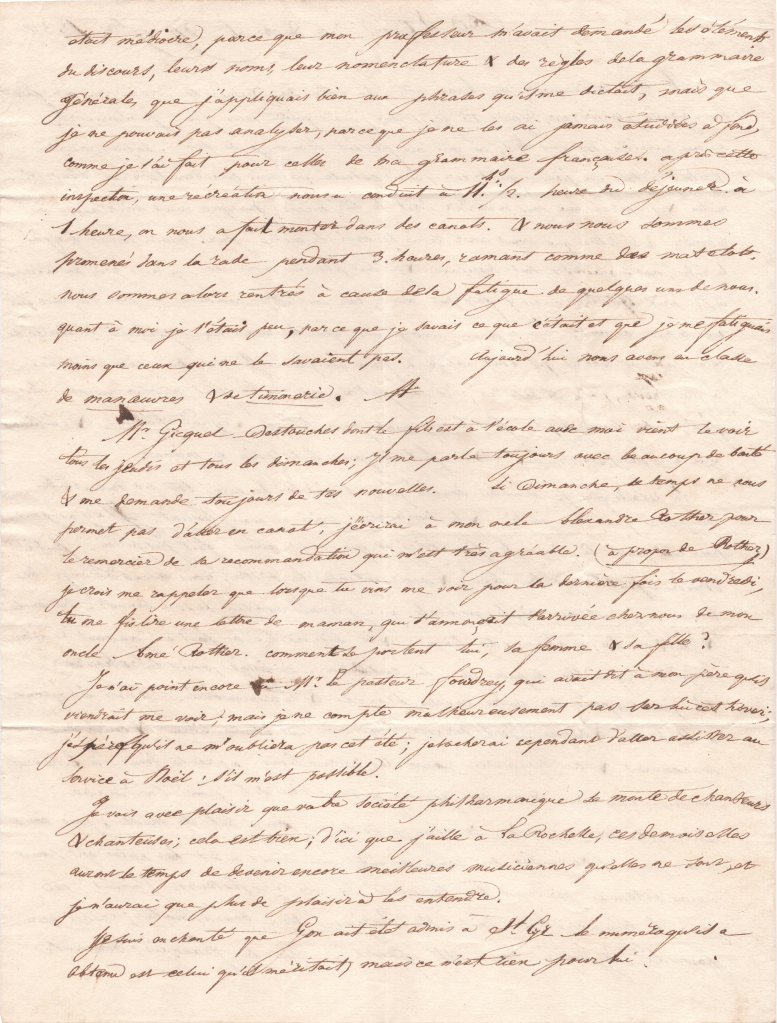 était médiocre, parce que mon professeur m'avait demandé les éléments
du discours, leurs noms, leur nomenclature & des règles de la grammaire
générale, que j'appliquais bien aux phrases qu'il me dictait, mais que
je ne pouvais pas analyser, parce que je ne les ai jamais étudiées à fond,
comme je l'ai fait pour celles de ma grammaire française. après cette
inspection, une récréation nous a conduit à 11 h 1/2. heure du déjeuner. à
1 heure, on nous a fait monter dans des canots. & nous nous sommes
promené dans la rade pendant 3. heures, ramant comme des matelots.
nous sommes alors rentrés à cause de la fatigue de quelques uns de nous.
quant à moi je l'étais peu, parce que je savais ce que c'était et que je me fatiguais
moins que ceux qui ne le savaient pas. Aujourd'hui nous avons eu classe
de manœuvres & de timonerie.
Mr. Gicquel Destouches dont le fils est à l'école avec moi vient le voir
tous les jeudis et tous les dimanches; Il me parle toujours avec beaucoup de bonté
& me demande toujours de tes nouvelles. Si Dimanche, le temps ne nous
permet pas d'aller en canot, j'écrirai à mon oncle Alexandre Rother pour
le remercier de sa recommandation qui m'est très agréable. (à propos de Rother,)
je crois me rappeler que lorsque tu vins me voir pour la dernière fois le vendredi,
tu me fis lire une lettre de maman, qui t'annonçait l'arrivée chez nous de mon
oncle Amé Rother. comment se portent lui, sa femme & sa fille?
Je n'ai point encore vu Mr. le pasteur Fourdrey, qui avait dit à mon père qu'il
viendrait me voir; mais je ne compte malheureusement pas sur lui cet hiver;
j'espère qu'il ne m'oubliera pas cet été; je tacherai cependant d'aller assister au
service à Noël s'il m'est possible.
Je vois avec plaisir que votre société philharmonique se monte de chanteurs
& chanteuses; cela est bien; d'ici que j'aille à La Rochelle, ces demoiselles
auront le temps de devenir encore meilleures musiciennes qu'elles ne sont, et
je n'aurai que plus de plaisir à les entendre.
Je suis enchanté que Gon ait été admis à St. Cyr. le numéro qu'il a
obtenu est celui qu'il méritait, mais ce n'est rien pour lui.